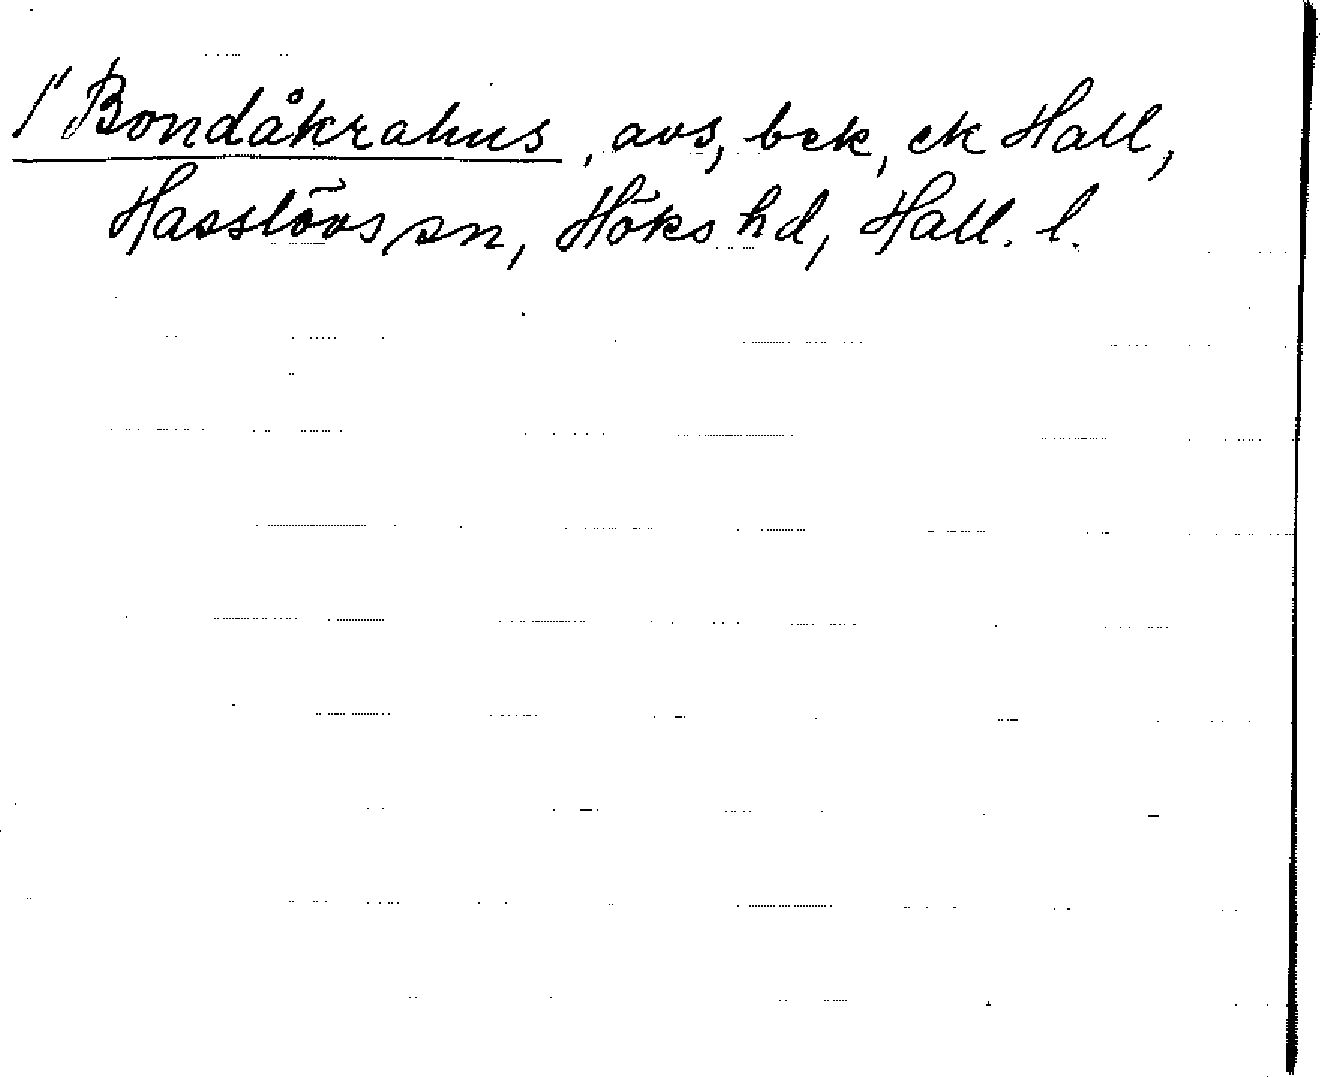 1" Bondåkrahus, avs, bek, ek Hall,
Hasslövs sn, Höks hd, Hall. l.